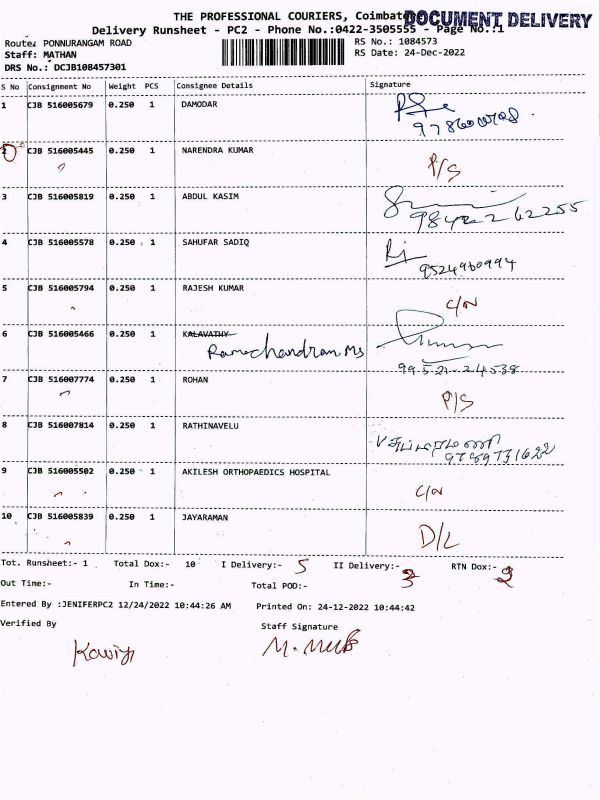 THE PROFESSIONAL COURIERS, Coimbat DOCUMENT DELIVERY
Delivery Runsheet - PC2 - Phone No.:0422-3505555 - Page No.:1
Route: PONNURANGAM ROAD RS No.: 1084573
Staff: MATHAN RS Date: 24-Dec-2022
DRS No.: DCJB108457301
S No Consignment No Weight PCS Consignee Details Signature
1 CJB 516005679 0.250 1 DAMODAR
2 CJB 516005445 0.250 1 NARENDRA KUMAR P/S
3 CJB 516005819 0.250 1 ABDUL KASIM
4 CJB 516005578 0.250 1 SAHUFAR SADIQ
9524960994
5 CJB 516005794 0.250 1 RAJESH KUMAR C/N
6 CJB 516005466 0.250 1 KALAVATHY
Ramachandran Ms
99521-24538
7 CJB 516007774 0.250 1 ROHAN P/S
8 CJB 516007814 0.250 1 RATHINAVELU
9789731622
9 CJB 516005502 0.250 1 AKILESH ORTHOPAEDICS HOSPITAL C/N
10 CJB 516005839 0.250 1 JAYARAMAN D/L
Tot. Runsheet:- 1 Total Dox:- 10 I Delivery:- 5 II Delivery:- 3 RTN Dox:- 2
Out Time:- In Time:- Total POD:-
Entered By :JENIFERPC2 12/24/2022 10:44:26 AM Printed On: 24-12-2022 10:44:42
Verified By Staff Signature